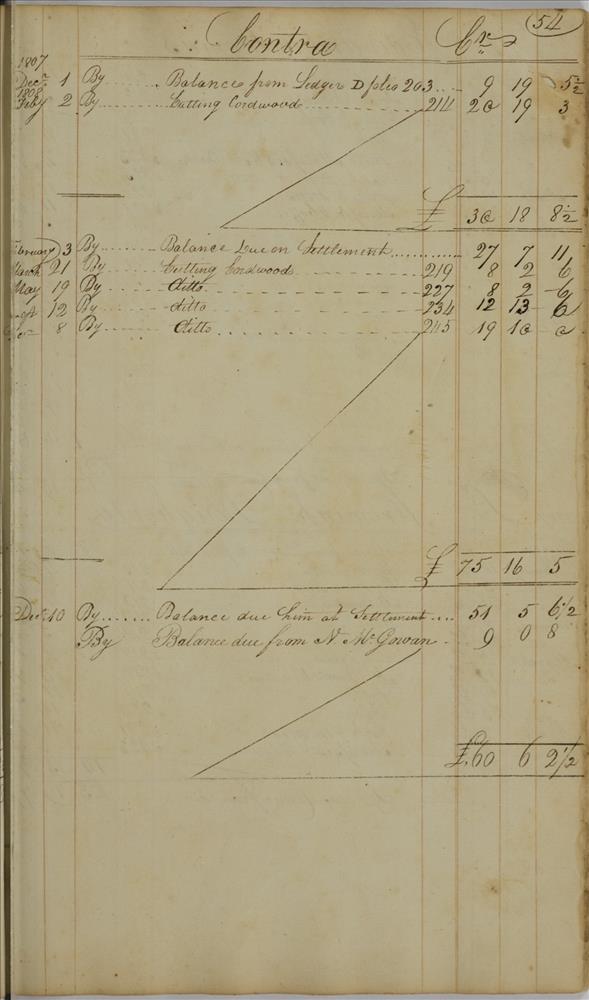 54
Contra Cr
1807
Decr 1 By Balance from Ledger D folio 203 9 19 5 1/2
1808
Feby 2 By Cutting Cordwood 214 20 19 3
£ 30 18 8 1/2
February 3 By Balance Due on Settlement 27 7 11
March 21 By Cutting Cordwood 219 8 2 6
May 19 By ditto 227 8 2 6
12 By ditto 234 12 13 6
8 By ditto 245 19 10 0
£ 75 16 5
Dec 10 By Balance due him at Settlement 51 5 6 1/2
By Balance due from N McGowan 9 0 8
£ 60 6 2 1/2